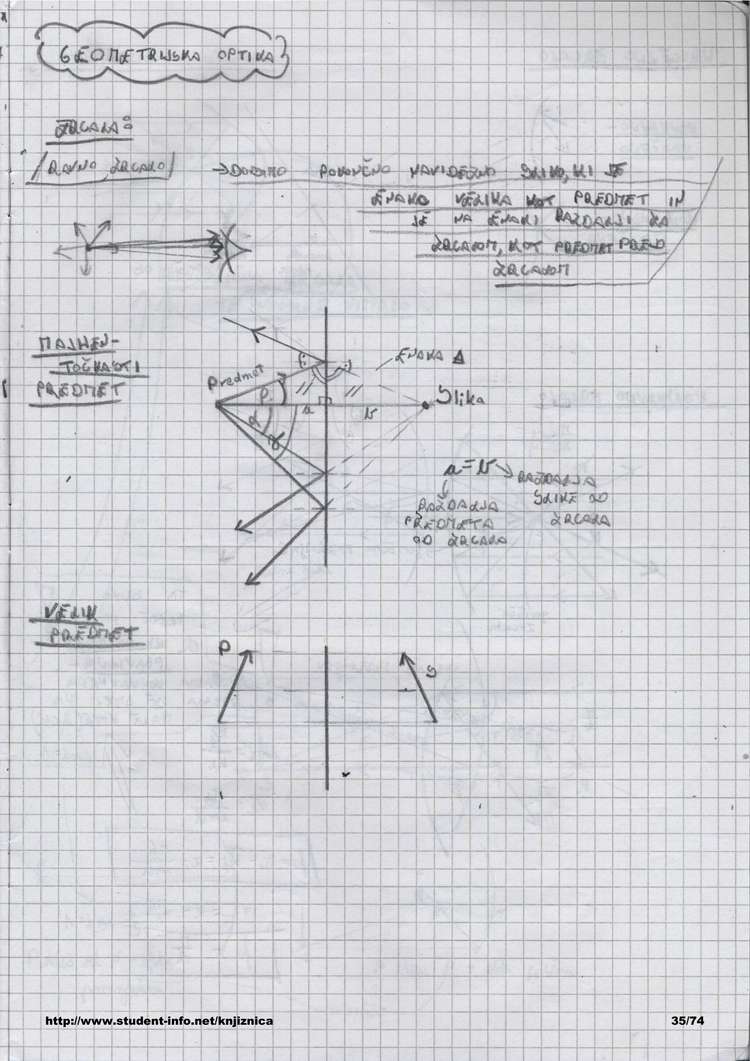 GEOMETRIJSKA OPTIKA
ZRCALA:
RAVNO ZRCALO → DOBIMO POKONČNO NAVIDEZNO SLIKO, KI JE
ENAKO VELIKA KOT PREDMET IN
JE NA ENAKI RAZDALJI ZA
ZRCALOM, KOT PREDMET PRED
ZRCALOM
MAJHEN-
TOČKASTI
PREDMET
ENAKA Δ
Predmet
β
a
b
Slika
α
γ
a = b
RAZDALJA
SLIKE OD
ZRCALA
RAZDALJA
PREDMETA
OD ZRCALA
VELIK
PREDMET
P
S
http://www.student-info.net/knjiznica 35/74